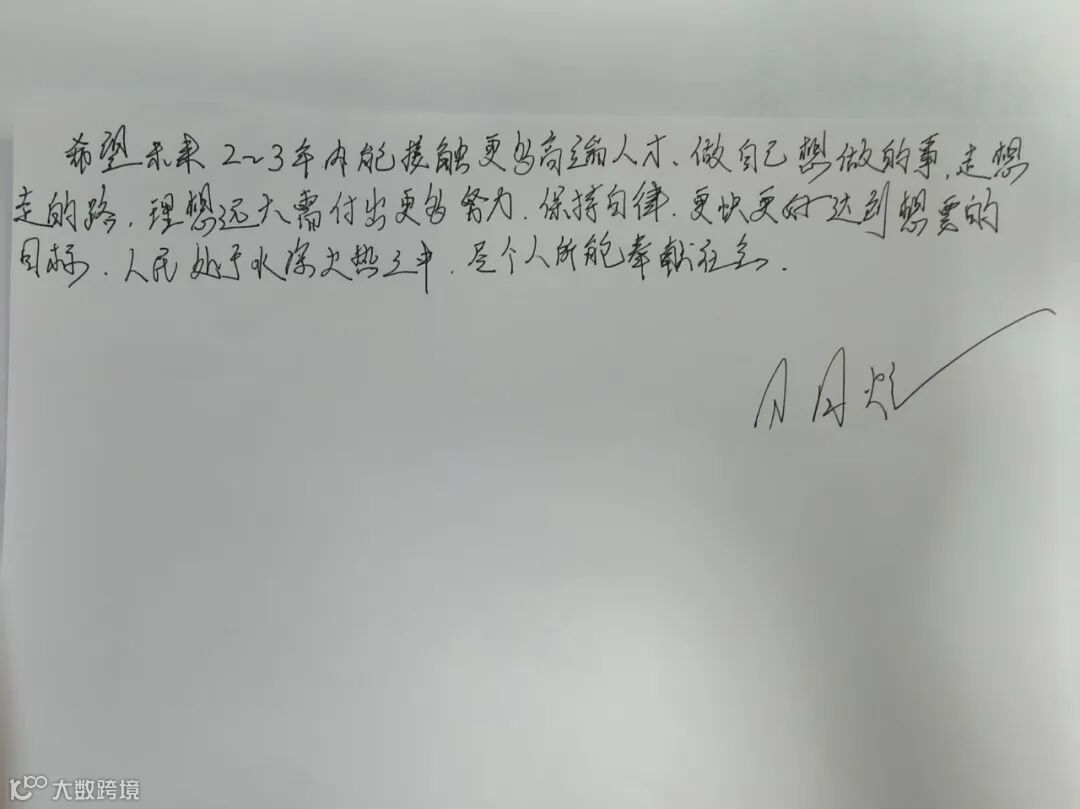 希望未来2~3年内能接触更多高端人才、做自己想做的事,走想
走的路,理想远大需付出更多努力,保持自律,更快更好达到想要的
目标,人民处于水深火热之中,尽个人所能奉献社会.
大数跨境